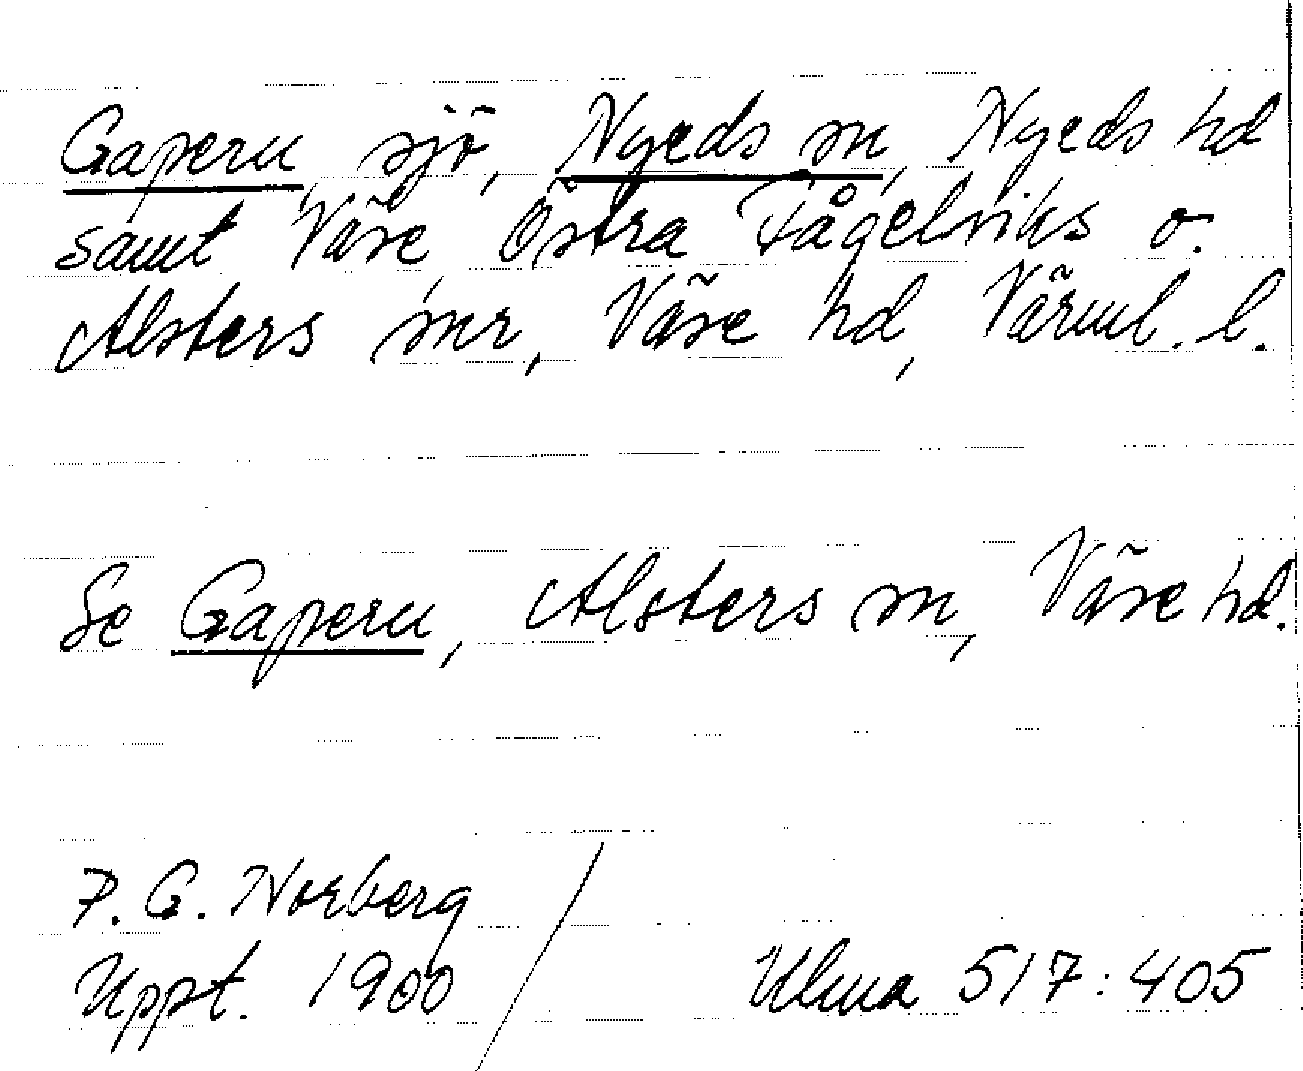 Gapern sjö, Nyeds sn, Nyeds hd
samt Väse, Östra Fågelviks o.
Alsters snr, Väse hd, Värml. l.
Se Gapern, Alsters sn, Väse hd.
P. G. Norberg
Uppt. 1900
Ulma 517:405